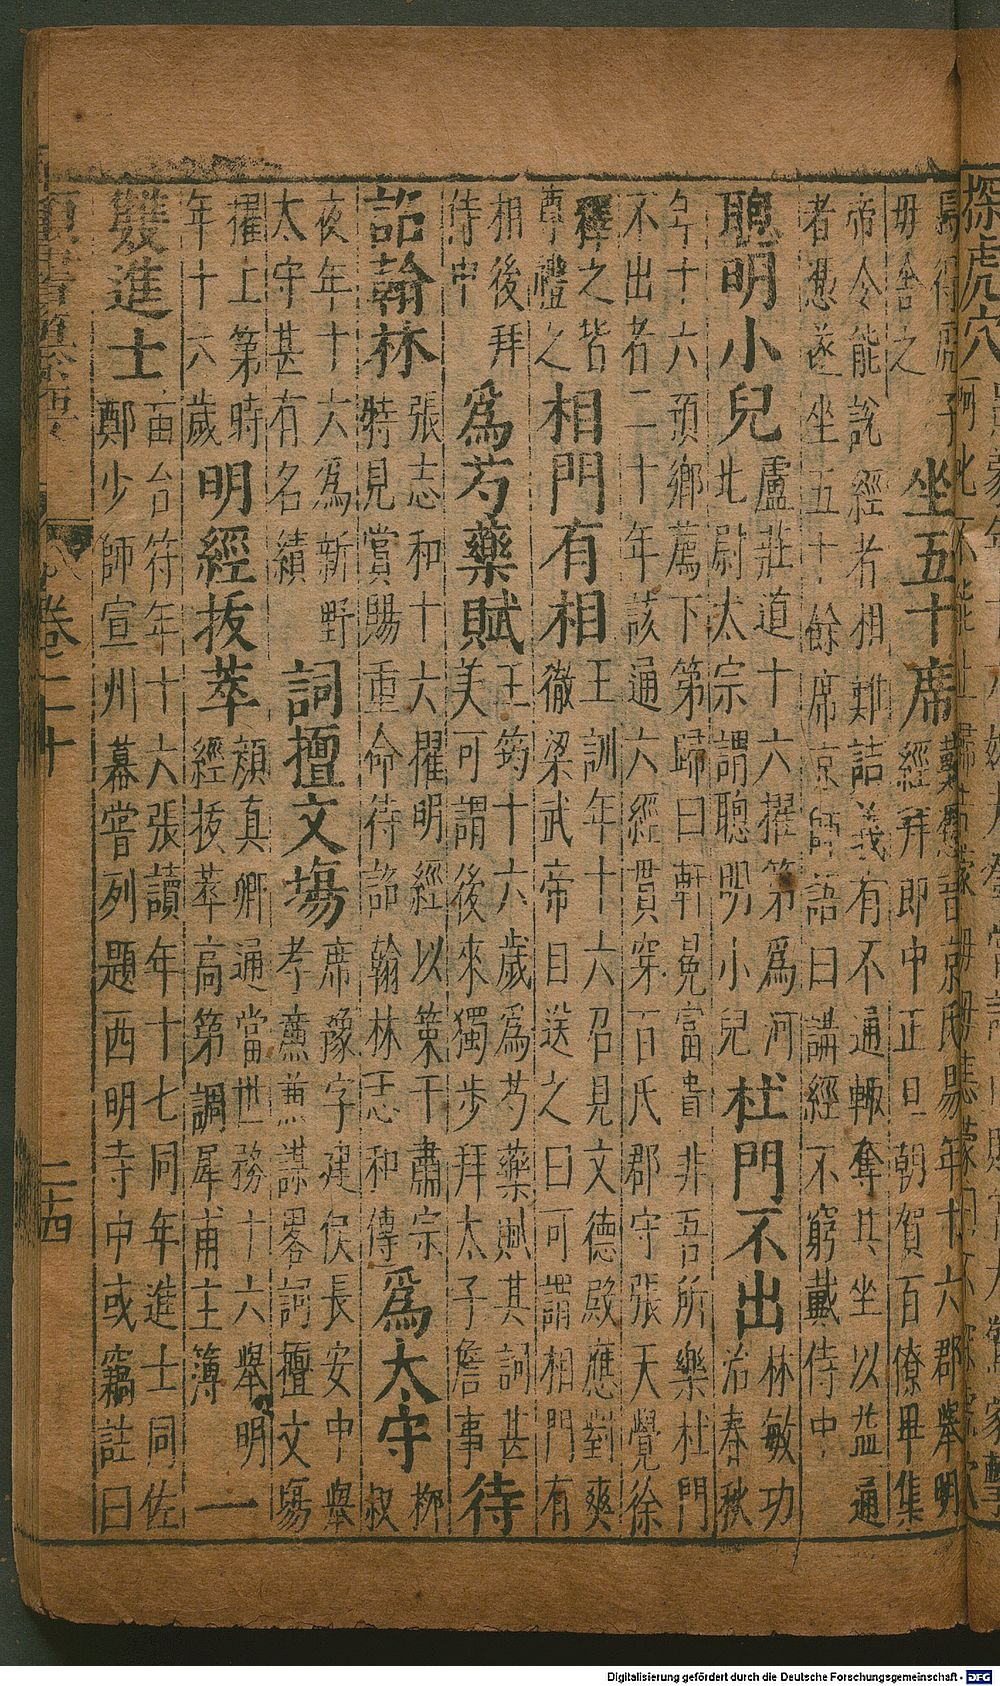 探虎穴
焉得虎子
毋舍之
坐五十席
戴憑習京氏易年十六郡舉明
經拜即中正旦朝賀百僚畢集
帝令能說經者相難詰義有不通輒奪其坐以益通
者憑遂坐五十餘席京師語曰講經不窮戴侍中
聰明小兒
盧莊道十六擢第爲河
北尉太宗謂聰明小兒
杜門不出
林敏功
治春秋
年十六預鄉薦下第歸曰軒冕富貴非吾所樂杜門
不出者二十年該通六經貫穿百氏郡守張天覺徐
鐸之皆
尊禮之
相門有相
王訓年十六召見文德殿應對爽
徹梁武帝目送之曰可謂相門有
相後拜
侍中
爲芍藥賦
王筠十六歲爲芍藥賦其詞甚
美可謂後來獨步拜太子詹事
待
詔翰林
張志和十六擢明經以策干肅宗
特見賞賜重命待詔翰林志和傳
爲太守
柳
叔
夜年十六爲新野
太守甚有名績
詞擅文場
席豫字建侯長安中舉
孝廉兼謀畧詞擅文場
擢上第時
年十六歲
明經拔萃
顏真卿通當世務十六舉明
經拔萃高第調犀甫主簿
一
雙進士
苗台符年十六張讀年十七同年進士同佐
鄭少師宣州幕嘗列題西明寺中或竊註曰
卷二十
二十四
Digitalisierung gefördert durch die Deutsche Forschungsgemeinschaft - DFG